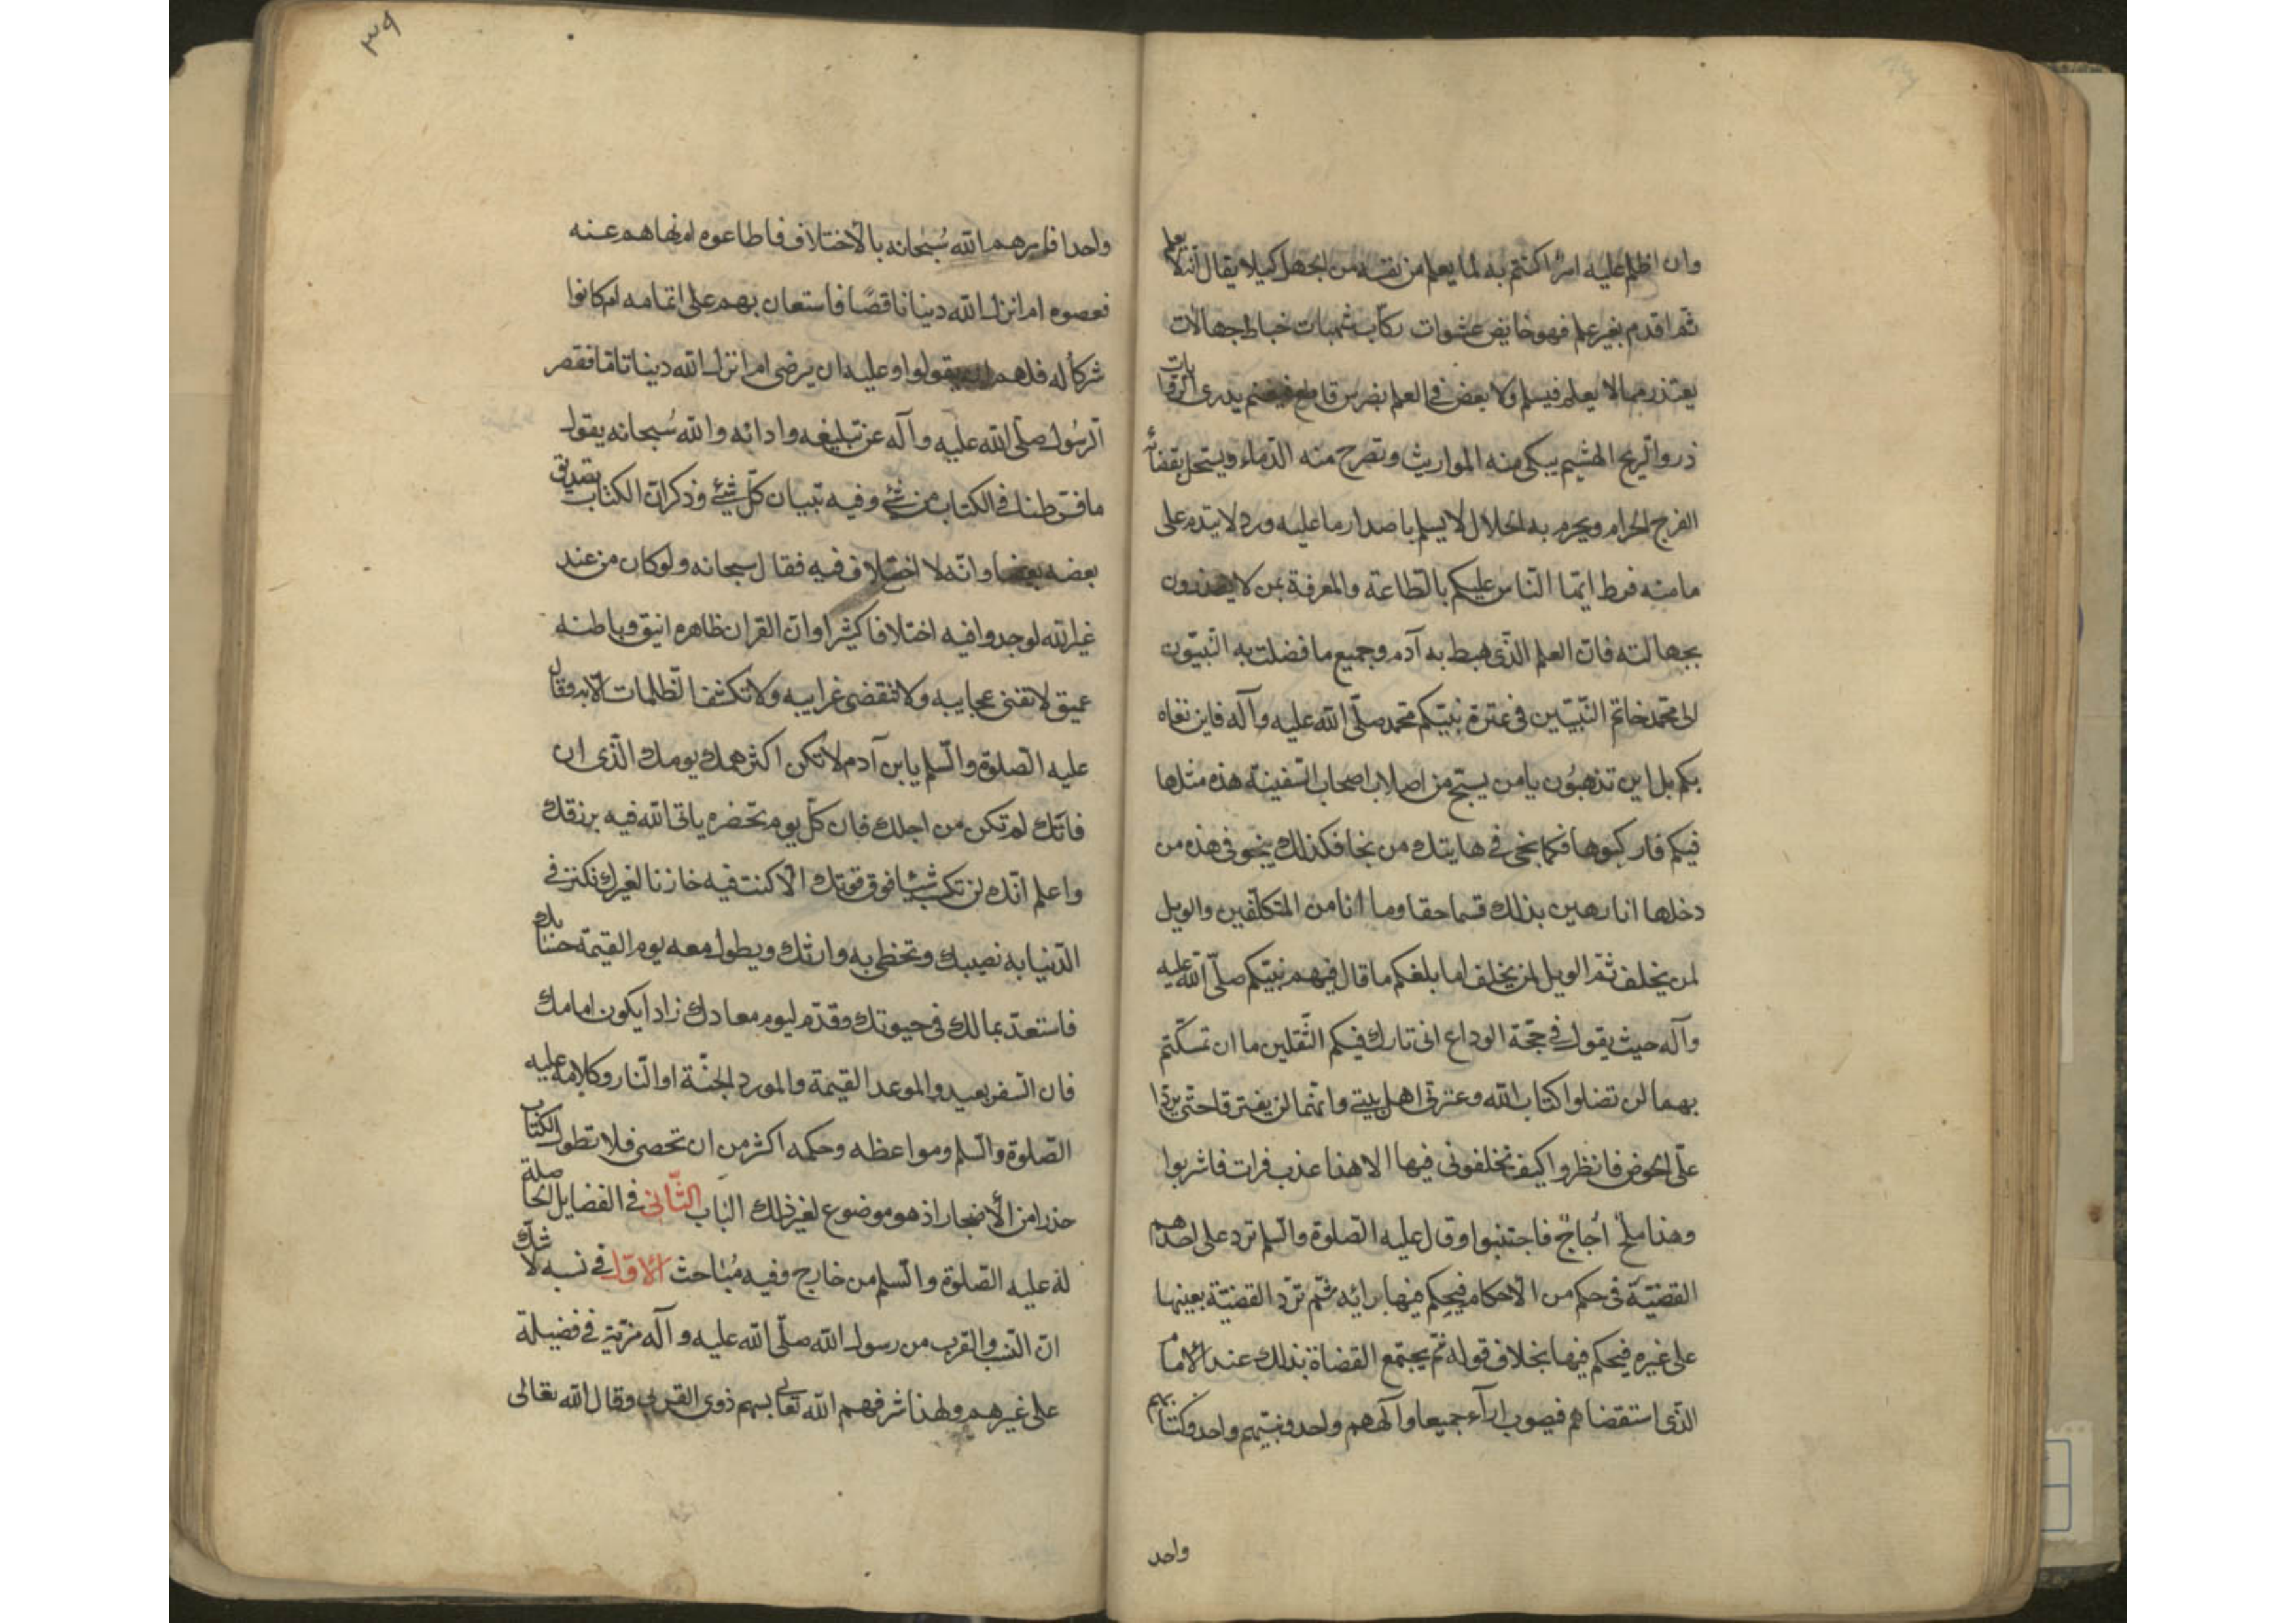 وان اظلم عليه امرا كتم به لما يعلم من نفسه من الجهل كيلا يقال انه لا يعلم
ثم اقدم بغير علم فهو خايض عشوات ركاب شبهات خباط جهالات
يعتذر مما لا يعلم فيسلم ولا يعض في العلم بضرس قاطع فيغنم يذرى الروايات
ذرو الريح الهشيم يبكى منه المواريث وتصرخ منه الدماء ويستحل بقضائه
الفرج الحرام ويحرم به الحلال لا يسلم باصدار ما عليه ورد لا يندم على
ما منه فرط ايها الناس عليكم بالطاعة والمعرفة بمن لا يعذرون
بجهالته فان العلم الذى هبط به آدم وجميع ما فضلت به النبيون
الى محمد خاتم النبيين فى عترة نبيكم محمد صلى الله عليه وآله فاين نغاه
بكم بل اين تذهبون يا من ينسخ من اصلاب اصحاب السفينة هذه مثلها
فيكم فاركبوها فكما نجى فى هاتيك من نجا فكذلك ينجو فى هذه من
دخلها انا رهين بذلك قسما حقا وما انا من المتكلفين والويل
لمن يخلف ثم الويل لمن يخلف اما بلغكم ما قال فيهم نبيكم صلى الله عليه
وآله حيث يقول فى حجة الوداع انى تارك فيكم الثقلين ما ان تمسكتم
بهما لن تضلوا كتاب الله وعترتى اهل بيتى وانهما لن يفترقا حتى يردا
على الحوض فانظروا كيف تخلفونى فيها الا هذا عذب فرات فاشربوا
وهذا ملح اجاج فاجتنبوا وقال عليه الصلوة والسلم ترد على احدهم
القضية فى حكم من الاحكام فيحكم فيها برايه ثم ترد القضية بعينها
على غيره فيحكم فيها بخلاف قوله ثم يجتمع القضاة بذلك عند الامام
الذى استقضاهم فيصوب اراء جميعا وآلههم واحد ونبيهم واحد وكتابهم
واحد
٣٩
واحدا فامرهم الله سبحانه بالاختلاف فاطاعوه ام نهاهم عنه
فعصوه ام انزل الله دينا ناقصا فاستعان بهم على اتمامه ام كانوا
شركاء له فلهم ان يقولوا وعليه ان يرضى ام انزل الله دينا تاما فقصر
الرسول صلى الله عليه وآله عن تبليغه وادائه والله سبحانه يقول
ما فرطنا فى الكتاب من شئ وفيه تبيان كل شئ وذكر ان الكتاب يصدق
بعضه بعضا وانه لا اختلاف فيه فقال سبحانه ولو كان من عند
غير الله لوجدوا فيه اختلافا كثيرا وان القران ظاهره انيق وباطنه
عميق لا تفنى عجايبه ولا تنقضى غرايبه ولا تكشف الظلمات الا به وقال
عليه الصلوة والسلم يا بن آدم لا تكن اكثر همك يومك الذى ان
فاتك لم تكن من اجلك فان كل يوم تحضره ياتى الله فيه برزقك
واعلم انك لن تكسب شيئا فوق قوتك الا كنت فيه خازنا لغيرك تكنز فى
الدنيا به نصيبك وتحظى به وارثك ويطول معه يوم القيمة حسابك
فاستعد بمالك فى حيوتك وقدم ليوم معادك زادا يكون امامك
فان السفر بعيد والموعد القيمة والمورد الجنة او النار وكلامه عليه
الصلوة والسلم ومواعظه وحكمه اكثر من ان تحصى فلا تطول الكتاب
حذرا من الاضجار اذ هو موضوع لغير ذلك الباب الثانى فى الفضايل الحاصلة
له عليه الصلوة والسلم من خارج وفيه مباحث الاول فى نسبه لا شك
ان النسب والقرب من رسول الله صلى الله عليه وآله مزية فى فضيلة
على غيرهم ولهذا شرفهم الله تعالى بسهم ذوى القربى وقال الله تعالى